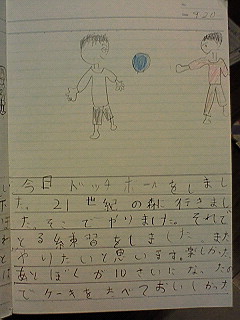 今日ドッチボールをしまし
た。21世紀の森に行きまし
た。そこでやりました。それで
とる練習をしました。また
やりたいと思います。楽しかった
あとぼくが10さいになったの
でケーキをたべておいしかった